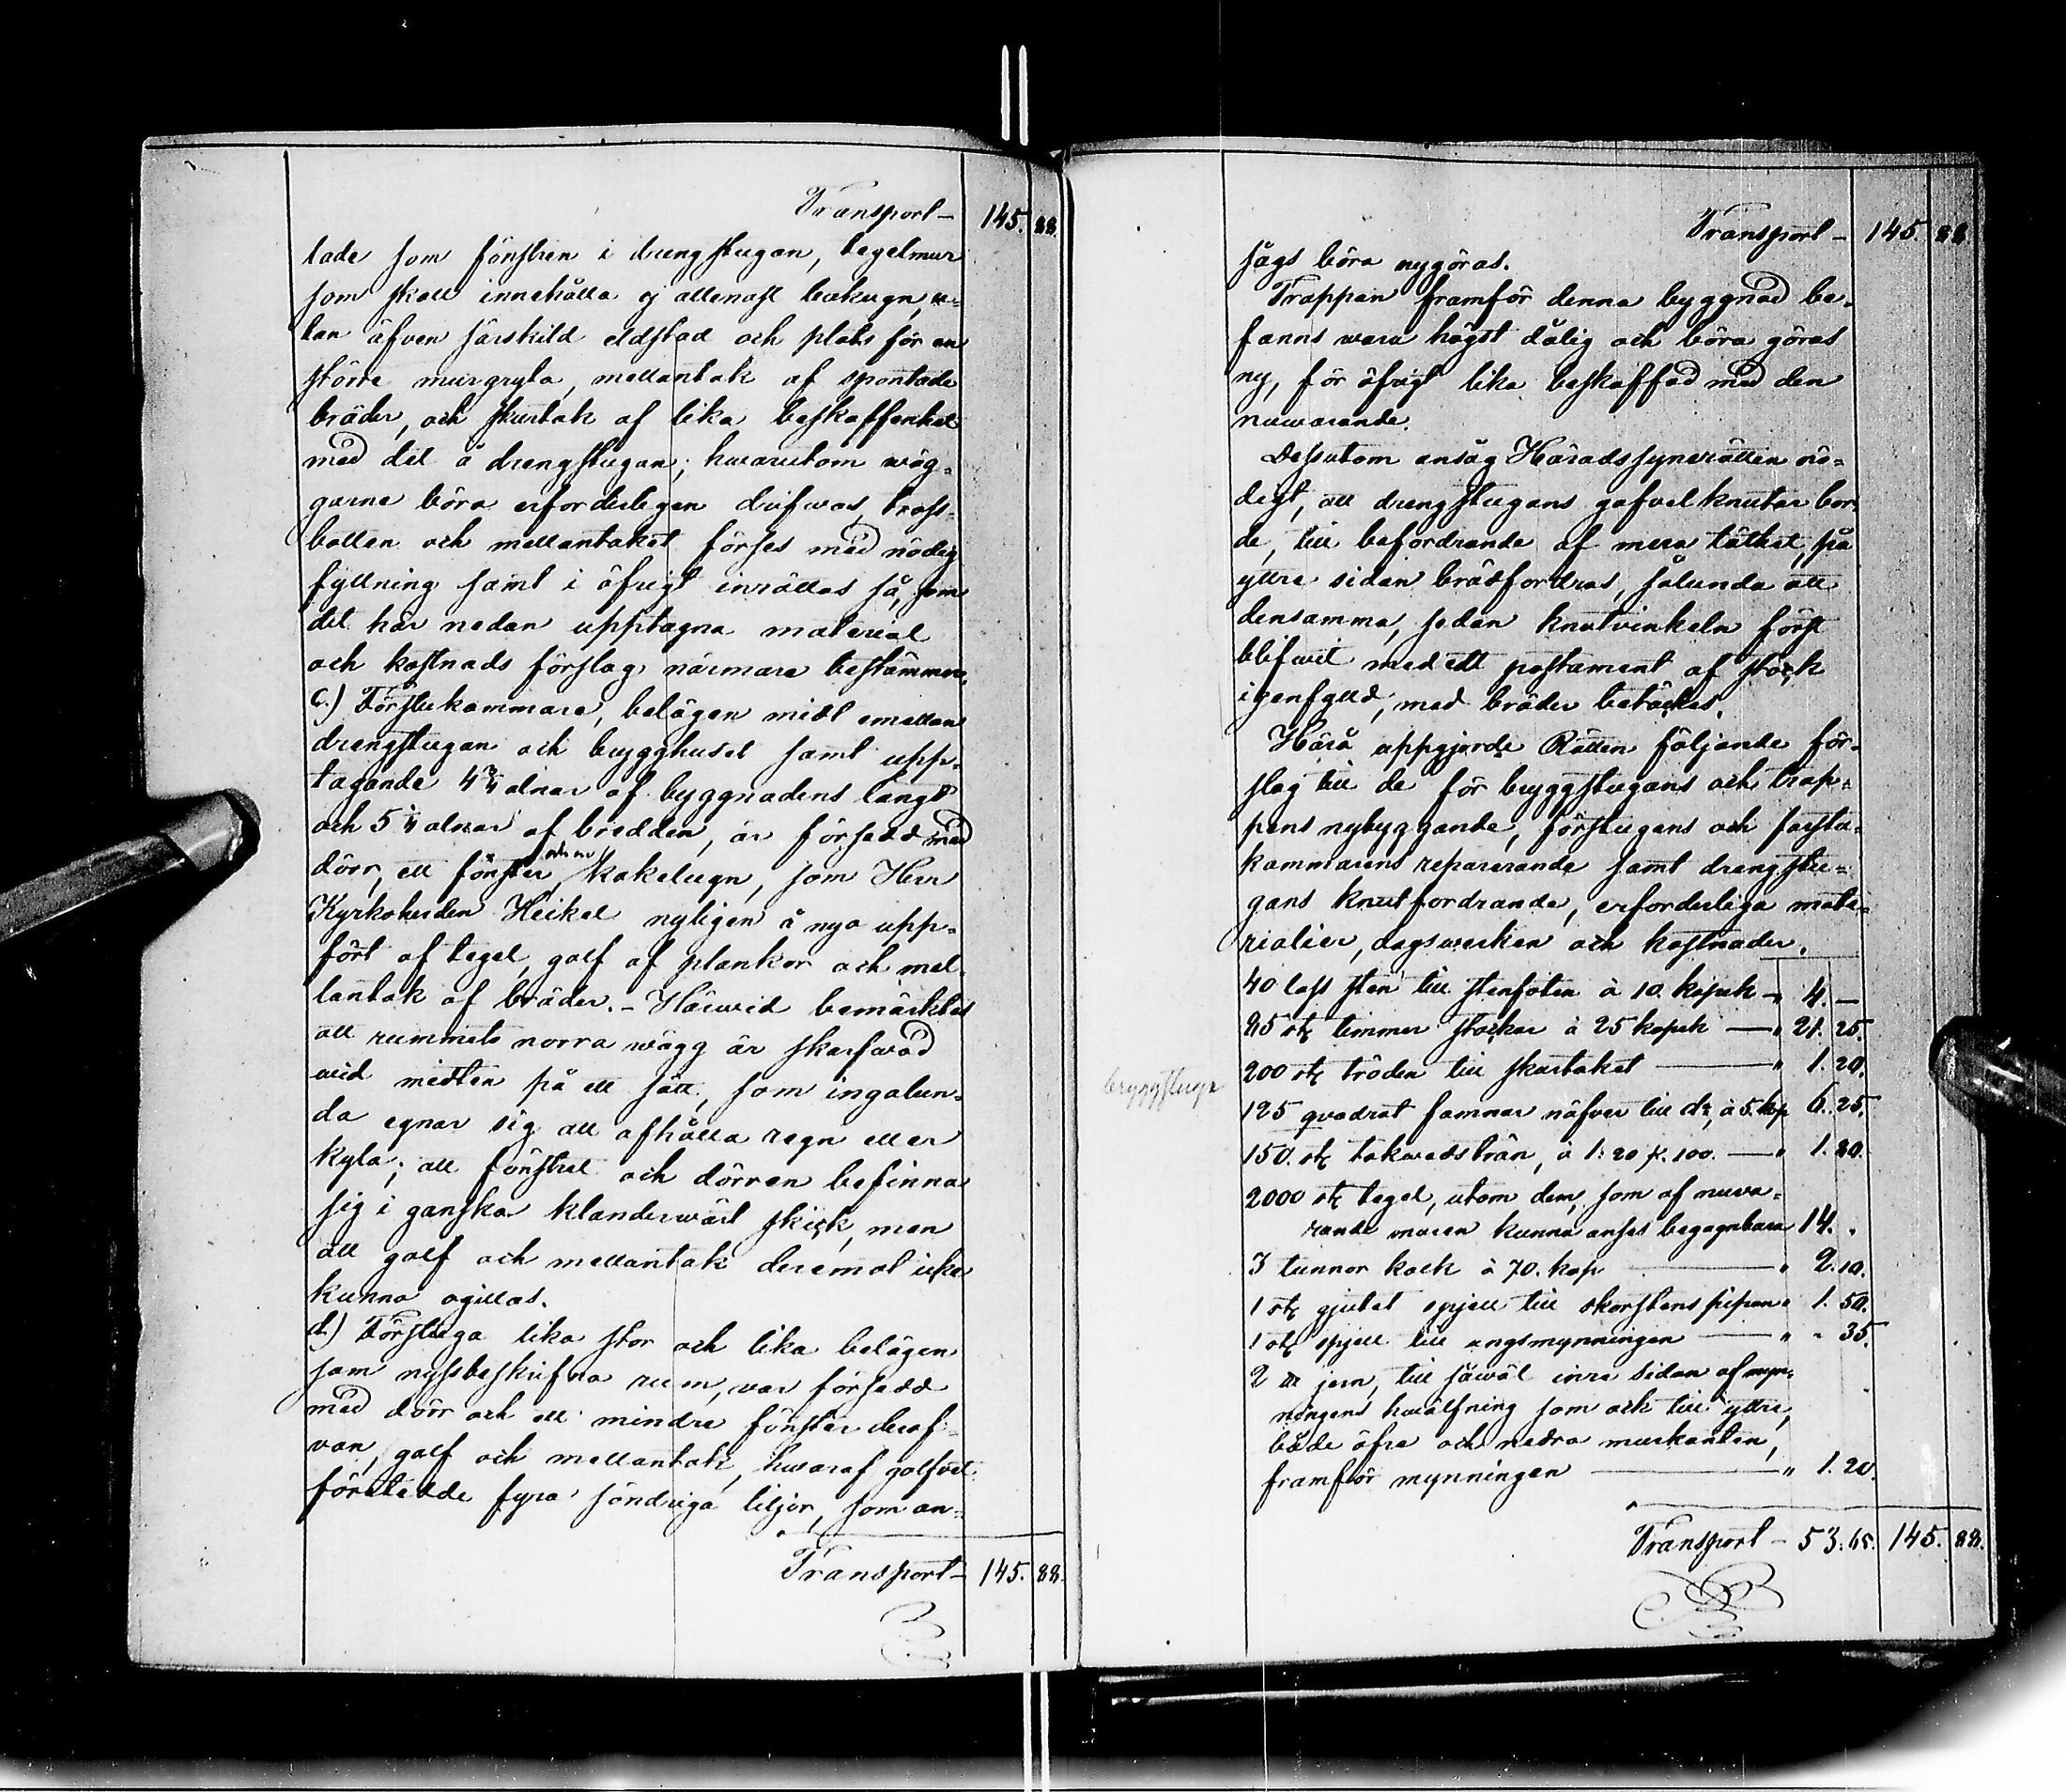 Transport - 145. 88.
tade som fönstren i drengstugan, tegelmur
som skall innehålla ej allenast bakugn, u-
tan äfven särskild eldstad och plats för en
större murgryta, mellantak af spontade
bräder, och skurtak af lika beskaffenhet
med det å drengstugan; hwarutom wäg-
garne böra erforderligen drifwas, tross-
botten och mellantaket förses med nödig
fyllning samt i öfrigt inrättas så, som
det här nedan upptagna material
och kostnads förslag närmare bestämmer.
c.) Förstukammare, belägen midt emellan
drengstugan och brygghuset samt upp-
tagande 4 3/4 alnar af byggnadens längd
och 5 1/4 alnar af bredden, är försedd med
dörr, ett fönster, och en kakelugn, som Herr
Kyrkoherden Heikel nyligen å nyo upp-
fört af tegel, golf af plankor och mel-
lantak af bräder. - Härwid bemärktes
att rummets norra wägg är skarfwad
wid midten på ett sätt, som ingalun-
da egnar sig att afhålla regn eller
kyla; att fönstret och dörren befinna
sig i ganska klanderwärt skick, men
att golf och mellantak deremot icke
kunna ogillas.
d.) Förstuga lika stor och lika belägen
som nyssbeskrifna rum, var försedd
med dörr och ett mindre fönster derof-
van, golf och mellantak, hwaraf golfvet
företedde fyra söndriga tiljor, som an-
Transport - 145. 88.
Transport - 145. 88
sågs böra nygöras.
Trappan framför denna byggnad be-
fanns wara högst dålig och böra göras
ny, för öfrigt lika beskaffad med den
nuwarande.
Dessutom ansåg Häradssynerätten nö-
digt, att drengstugans gafvelknutar bor-
de, till befordrande af mera täthet, på
yttre sidan brädfordras, sålunda att
densamma, sedan knutvinkeln först
blifwit med ett postament af stock
igenfylld, med bräder betäckes.
Härå uppgjorde Rätten följande för-
slag till de för bryggstugans och trap-
pens nybyggande, förstugans och förstu-
kammarens reparerande samt drengstu-
gans knutfordrande, erforderliga mate-
rialier, dagswerken och kostnader.
40 lass sten till stenfoten à 10 kopek - 4. -
85 st. timmer stockar à 25 kopek - " 21. 25.
200 st. tröden till skurtaket - " 1. 20.
bryggstuga
125 qvadrat famnar näfver till do, à 5. kop 6. 25.
150. st. takwedsträn, à 1: 20 p. 100. - " 1. 80.
2000 st. tegel, utom dem, som af nuva-
rande muren kunna anses begagnbara 14. "
3 tunnor kalk à 70. kop - " 2. 10.
1 st. gjutet spjell till skorstens pipan " 1. 50.
1 st. spjell till ungsmynningen - " " 35.
2 jern, till såwäl inre sidan af myn-
ningens hwälfning som ock till yttre,
både öfre och nedra murkanten,
framför mynningen - " 1. 20.
Transport - 53. 65. 145. 88.